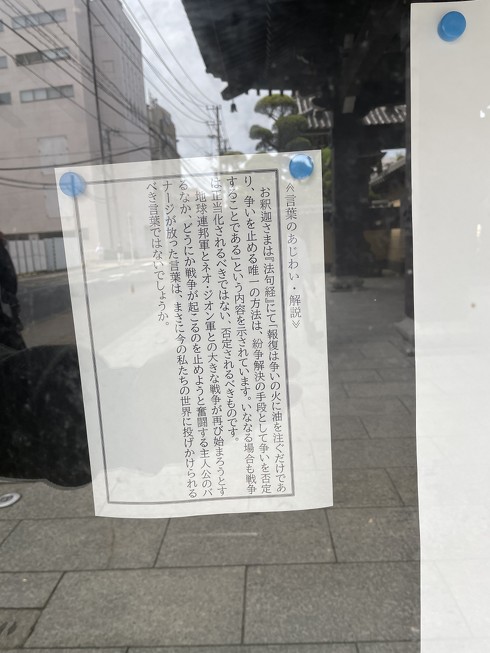 《言葉のあじわい・解説》
お釈迦さまは『法句経』にて「報復は争いの火に油を注ぐだけであ
り、争いを止める唯一の方法は、紛争解決の手段として争いを否定
することである」という内容を示されています。いななる場合も戦争
は正当化されるべきではない、否定されるべきものです。
地球連邦軍とネオ・ジオン軍との大きな戦争が再び始まろうとす
るなか、どうにか戦争が起こるのを止めようと奮闘する主人公のバ
ナージが放った言葉は、まさに今の私たちの世界に投げかけられる
べき言葉ではないでしょうか。